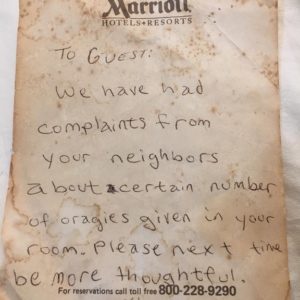 Marriott
HOTELS • RESORTS
To Guest:
We have had
complaints from
your neighbors
about a certain number
of oragies given in your
room. Please next time
be more thoughtful.
For reservations call toll free 800-228-9290